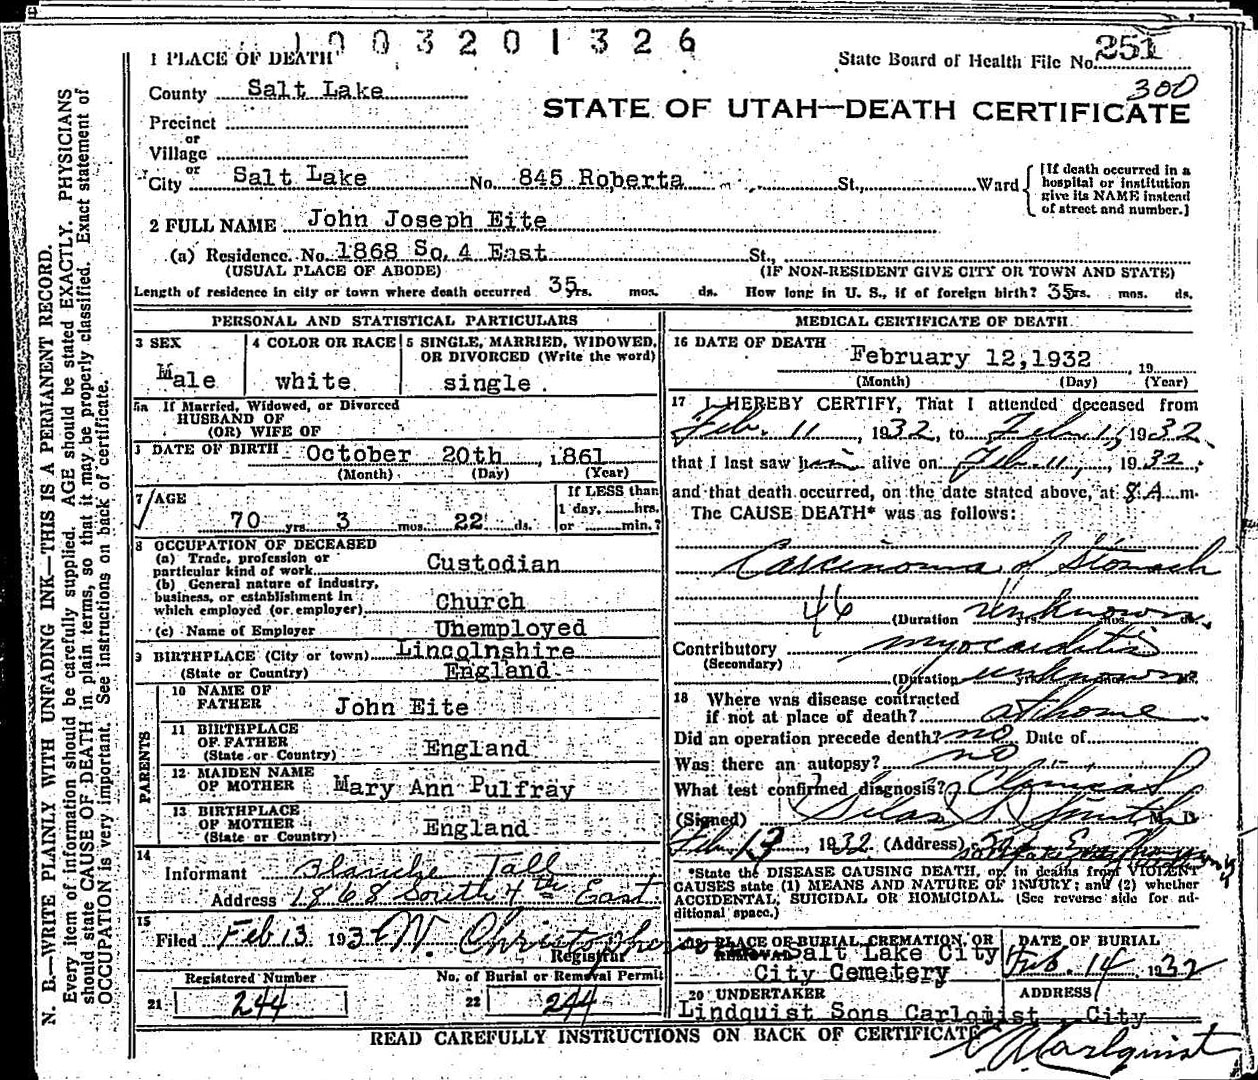 1003201326
1 PLACE OF DEATH
State Board of Health File No. 251
300
County Salt Lake
STATE OF UTAH—DEATH CERTIFICATE
Precinct
or
Village
or
City Salt Lake No. 845 Roberta St., Ward
[If death occurred in a hospital or institution give its NAME instead of street and number.]
2 FULL NAME John Joseph Eite
(a) Residence. No. 1868 So. 4 East St.,
(USUAL PLACE OF ABODE) (IF NON-RESIDENT GIVE CITY OR TOWN AND STATE)
Length of residence in city or town where death occurred 35 yrs. mos. ds. How long in U. S., if of foreign birth? 35 yrs. mos. ds.
PERSONAL AND STATISTICAL PARTICULARS
3 SEX
Male
4 COLOR OR RACE
white
5 SINGLE, MARRIED, WIDOWED,
OR DIVORCED (Write the word)
single.
5a If Married, Widowed, or Divorced
HUSBAND OF
(OR) WIFE OF
DATE OF BIRTH October 20th, 1861
(Month) (Day) (Year)
7 AGE
70 yrs. 3 mos. 22 ds.
If LESS than
1 day, hrs.
or min.?
8 OCCUPATION OF DECEASED
(a) Trade, profession or
particular kind of work Custodian
(b) General nature of industry,
business, or establishment in
which employed (or employer) Church
(c) Name of Employer Unemployed
9 BIRTHPLACE (City or town) Lincolnshire
(State or Country) England
PARENTS
10 NAME OF
FATHER John Eite
11 BIRTHPLACE
OF FATHER
(State or Country) England
12 MAIDEN NAME
OF MOTHER Mary Ann Pulfray
13 BIRTHPLACE
OF MOTHER
(State or Country) England
14
Informant Blanche Tall
Address 1868 South 4th East
15
Filed Feb 13 1932 W. Christopherson
Registrar
Registered Number
21 244
No. of Burial or Removal Permit
22 244
MEDICAL CERTIFICATE OF DEATH
16 DATE OF DEATH
February 12,1932, 19
(Month) (Day) (Year)
17 I HEREBY CERTIFY, That I attended deceased from
Feb. 11, 1932, to Feb. 11, 1932
that I last saw him alive on Feb. 11, 1932
and that death occurred, on the date stated above, at 8 A m.
The CAUSE DEATH* was as follows:
Carcinoma of Stomach
46 (Duration unknown yrs. mos. ds.
Contributory myocarditis
(Secondary)
(Duration unknown yrs. mos.
18 Where was disease contracted
if not at place of death? at home
Did an operation precede death? no Date of
Was there an autopsy? no
What test confirmed diagnosis? Clinical
(Signed) Silas S. Smith M. D.
Feb. 13, 1932 (Address)
*State the DISEASE CAUSING DEATH, or, in deaths from VIOLENT
CAUSES state (1) MEANS AND NATURE OF INJURY; and (2) whether
ACCIDENTAL, SUICIDAL OR HOMICIDAL. (See reverse side for ad-
ditional space.)
19 PLACE OF BURIAL, CREMATION, OR
REMOVAL Salt Lake City
City Cemetery
DATE OF BURIAL
Feb. 14, 1932
20 UNDERTAKER
Lindquist Sons Carlquist
ADDRESS
City
READ CAREFULLY INSTRUCTIONS ON BACK OF CERTIFICATE
Carlquist
N. B.—WRITE PLAINLY WITH UNFADING INK—THIS IS A PERMANENT RECORD.
Every item of information should be carefully supplied. AGE should be stated EXACTLY. PHYSICIANS
should state CAUSE OF DEATH in plain terms, so that it may be properly classified. Exact statement of
OCCUPATION is very important. See instructions on back of certificate.